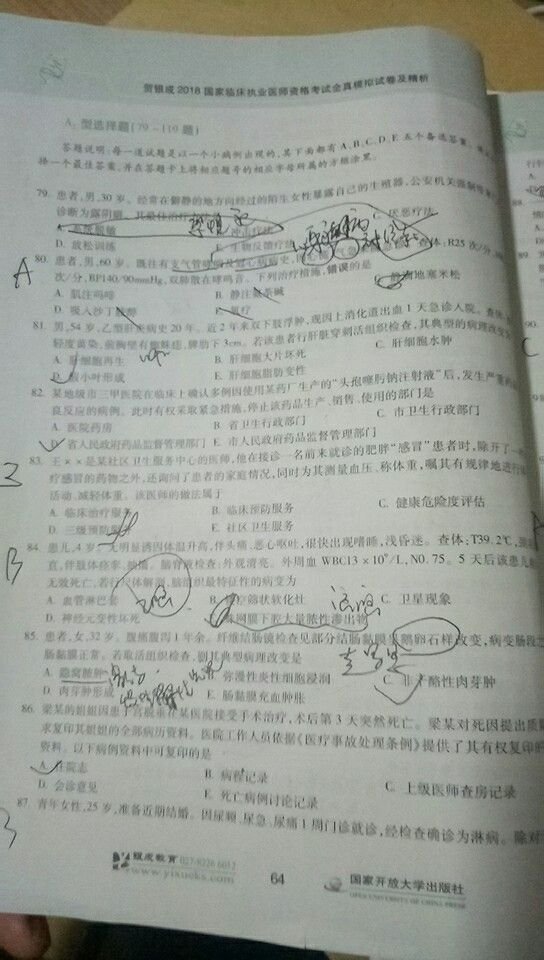 贺银成2018国家临床执业医师资格考试全真模拟试卷及精析
A₂型选择题(79~119题)
答题说明:每一道试题是以一个小病例出现的,其下面都有A、B、C、D、E五个备选答案。
择一个最佳答案,并在答题卡上将相应题号的相应字母所属的方框涂黑。
79. 患者,男,30岁。经常在僻静的地方向经过的陌生女性暴露自己的生殖器,公安机关强制
诊断为露阴癖,其最佳治疗
A. 系统脱敏 冲击疗法 厌恶疗法
D. 放松训练 E. 生物反馈疗法
80. 患者,男,60岁。既往有支气管哮喘及冠心病病史, 查体:R25次/分,
次/分,BP140/90mmHg,双肺散在哮鸣音。下列治疗措施,错误的是
A. 肌注吗啡 B. 静注氨茶碱 静滴地塞米松
D. 吸入沙丁胺醇 E. 氧疗
81. 男,54岁,乙型肝炎病史20年。近2年来双下肢浮肿,现因上消化道出血1天急诊入院。查体:
轻度黄染,前胸壁有蜘蛛痣,脾肋下3cm。若该患者行肝脏穿刺活组织检查,其典型的病理改变
A. 肝细胞再生 B. 肝细胞大片坏死 C. 肝细胞水肿
D. 假小叶形成 E. 肝细胞脂肪变性
82. 某地级市三甲医院在临床上确认多例因使用某药厂生产的“头孢噻肟钠注射液”后,发生严重
良反应的病例。此时有权采取紧急措施,停止该药品生产、销售、使用的部门是
A. 医院药房 B. 省卫生行政部门 C. 市卫生行政部门
D. 省人民政府药品监督管理部门 E. 市人民政府药品监督管理部门
83. 王××是某社区卫生服务中心的医师,他在接诊一名前来就诊的肥胖“感冒”患者时,除开了一
疗感冒的药物之外,还询问了患者的家庭情况,同时为其测量血压、称体重,嘱其有规律地进行
活动,减轻体重。该医师的做法属于
A. 临床治疗服务 B. 临床预防服务 C. 健康危险度评估
D. 三级预防服务 E. 社区卫生服务
84. 患儿,4岁。无明显诱因体温升高,伴头痛、恶心呕吐,很快出现嗜睡,浅昏迷。查体:T39.2℃,
直,伴肢体痉挛、抽搐。脑脊液检查:外观清亮。外周血WBC13×10⁹/L,N0.75。5天后该患儿
无效死亡,若行尸体解剖,脑组织最特征性的病变为
A. 血管淋巴套 B. 筛状软化灶 C. 卫星现象
D. 神经元变性坏死 蛛网膜下腔大量脓性渗出物
85. 患者,女,32岁。腹痛腹泻1年余。纤维结肠镜检查见部分结肠黏膜呈鹅卵石样改变,病变肠段
肠黏膜正常。若取活组织检查,则其典型病理改变是
A. 隐窝脓肿 弥漫性炎性细胞浸润 C. 非干酪性肉芽肿
D. 肉芽肿形成 E. 肠黏膜充血肿胀
86. 梁某的姐姐因患子宫脱垂在某医院接受手术治疗,术后第3天突然死亡。梁某对死因提出质
求复印其姐姐的全部病历资料。医院工作人员依据《医疗事故处理条例》提供了其有权复印的
资料。以下病例资料中可复印的是
A. 住院志 B. 病程记录 C. 上级医师查房记录
D. 会诊意见 E. 死亡病例讨论记录
87. 青年女性,25岁,准备近期结婚。因尿频、尿急、尿痛1周门诊就诊,经检查确诊为淋病。除对
银成教育 027-8226 6012
www.yixueks.com
64
国家开放大学出版社
OPEN UNIVERSITY OF CHINA PRESS
A
B